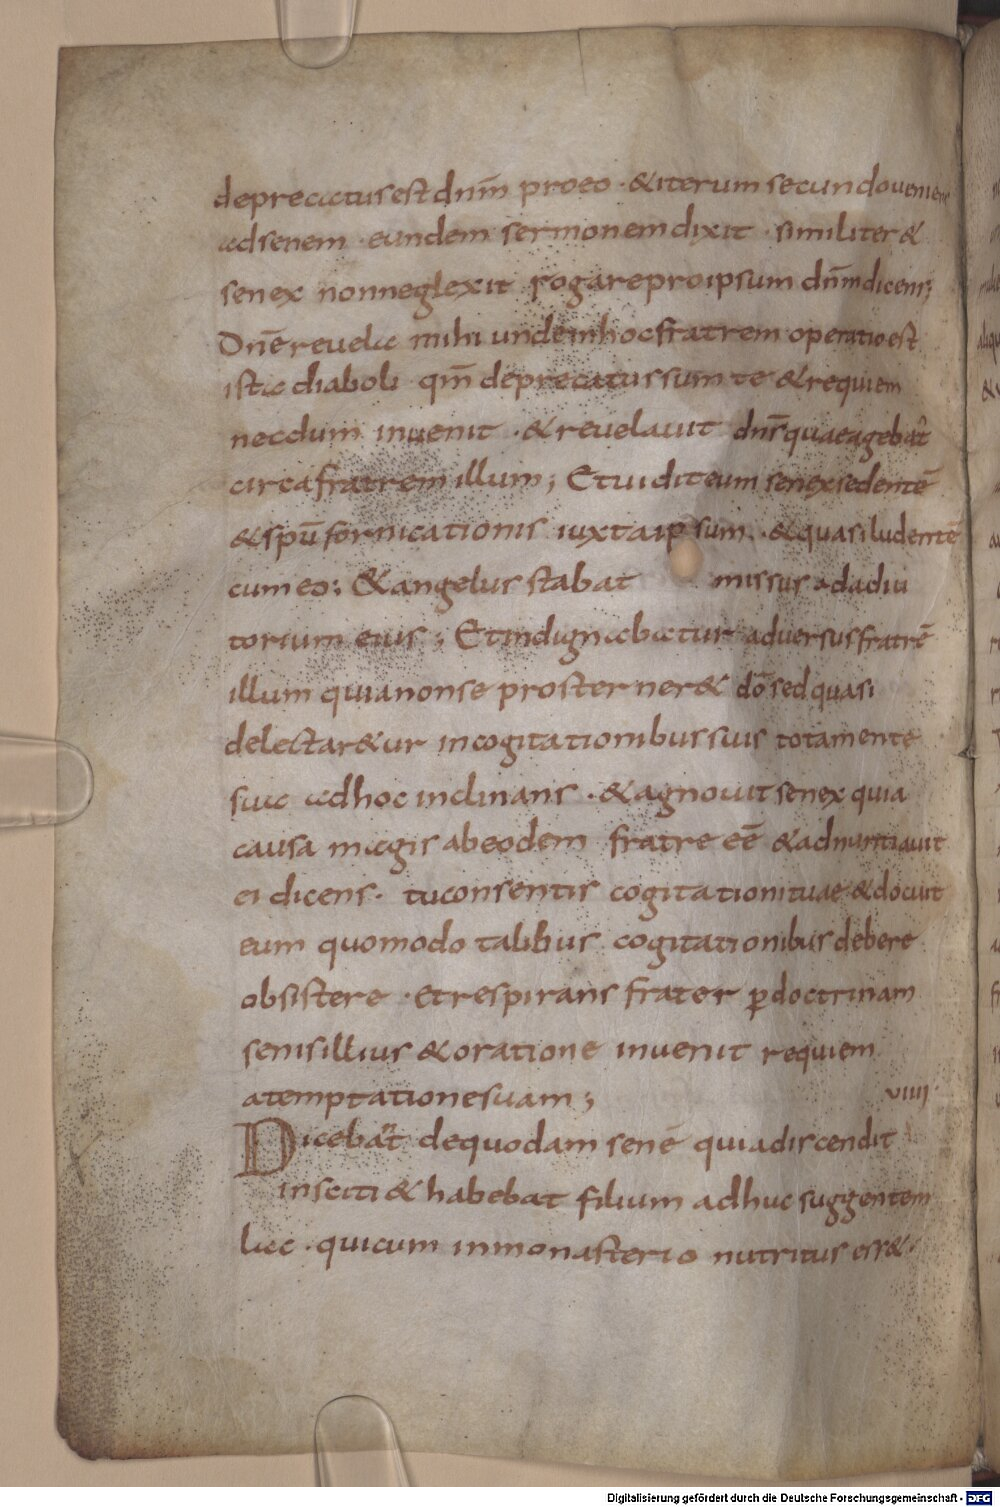 deprecatus est dnm̄ pro eo · & iterum secundo veniens
ad senem · eundem sermonem dixit · similiter &
senex non neglexit rogare pro ipsum dnm̄ dicens;
Dnē revela mihi unde in hoc fratrem operatio est
ista diaboli qm̄ deprecatus sum te & requiem
necdum invenit · & revelavit dnr̄ quae agebat̄
circa fratrem illum; Et vidit eum senex sedentē
& spū fornicationis iuxta ipsum · & quasi ludentē
cum eo; & angelus stabat missus ad adiu
torium eius; Et indignabatur adversus fratrē
illum quia non se prosterner& dō sed quasi
delectar&ur in cogitationibus suis tota mente
sua ad hoc inclinans · & agnovit senex quia
causa magis ab eodem fratre eē & adnuntiavit
ei dicens · tu consentis cogitationi tuae & docuit
eum quomodo talibus cogitationibus debere
obsistere · Et respirans frater ꝑ doctrinam
senis illius & oratione invenit requiem
a temptatione suam; viiij
Dicebat̄ de quodam senē quia discendit
in sciti & habebat filium adhuc suggentem
lac · qui cum in monasterio nutritus ess& ·
Digitalisierung gefördert durch die Deutsche Forschungsgemeinschaft - DFG